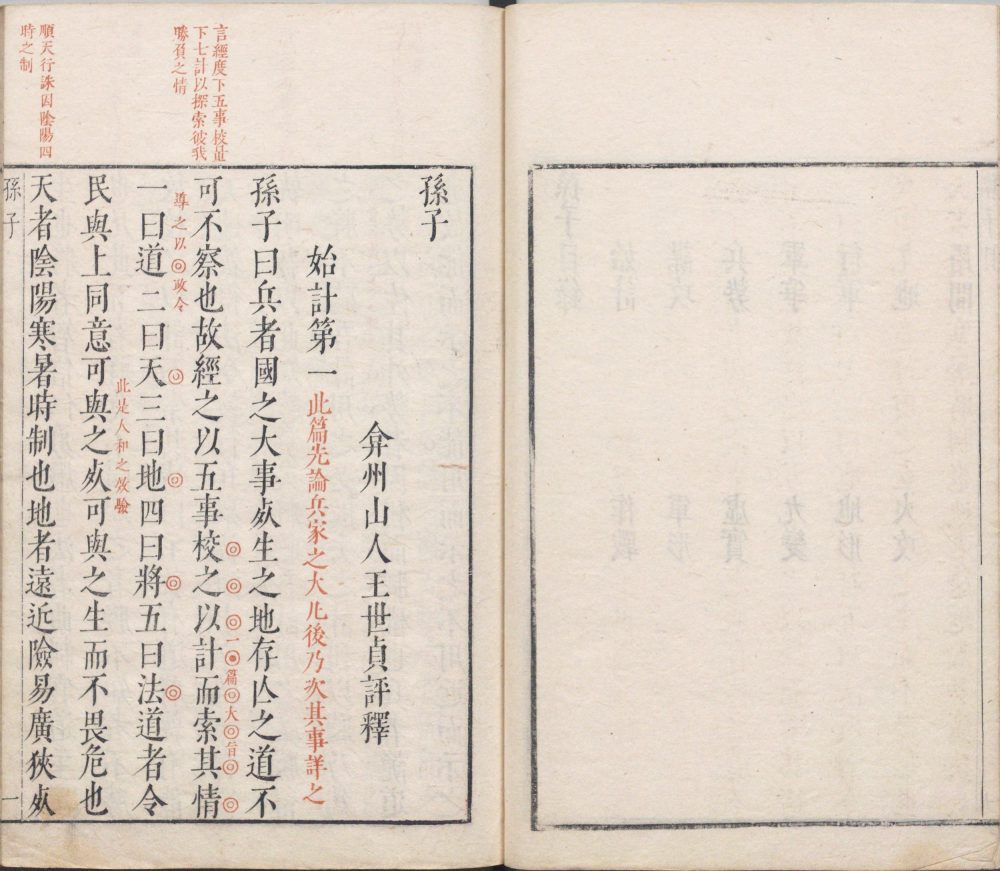 言經度下五事校量
下七計以探索彼我
勝負之情
順天行誅因陰陽四
時之制
孫子
弇州山人王世貞評釋
始計第一此篇先論兵家之大凡後乃次其事詳之
孫子曰兵者國之大事死生之地存亡之道不
可不察也故經之以五事校之以計而索其情
一篇大旨
導之以政令
一曰道二曰天三曰地四曰將五曰法道者令
民與上同意可與之死可與之生而不畏危也
此是人和之效驗
天者陰陽寒暑時制也地者遠近險易廣狹死
孫子
一